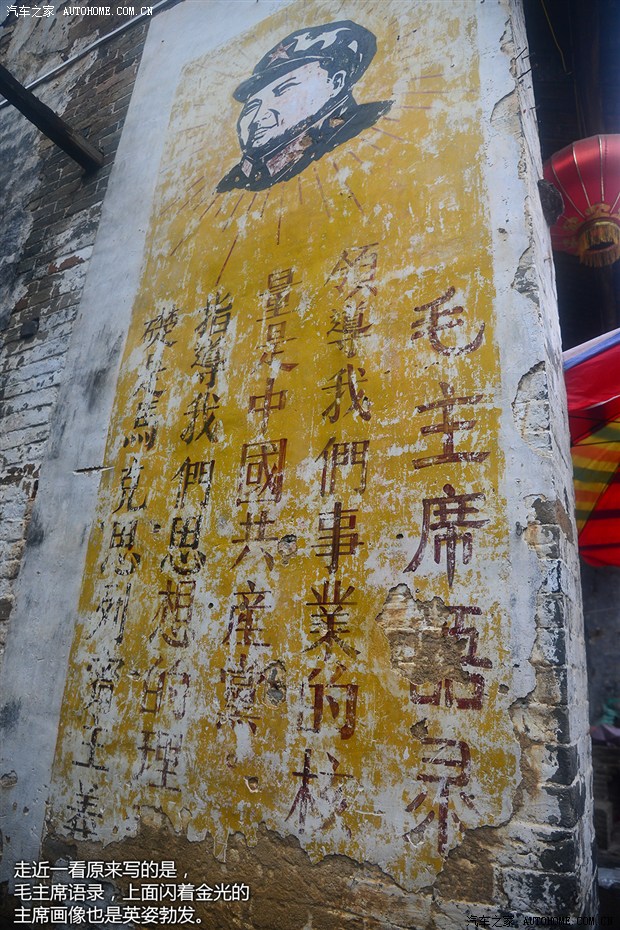 汽车之家 AUTOHOME.COM.CN
毛主席語录
領導我們事業的核
量是中國共産黨、
指導我們思想的理
礎是馬克思列寧主義
走近一看原来写的是，
毛主席语录，上面闪着金光的
主席画像也是英姿勃发。
汽车之家 AUTOHOME.COM.CN